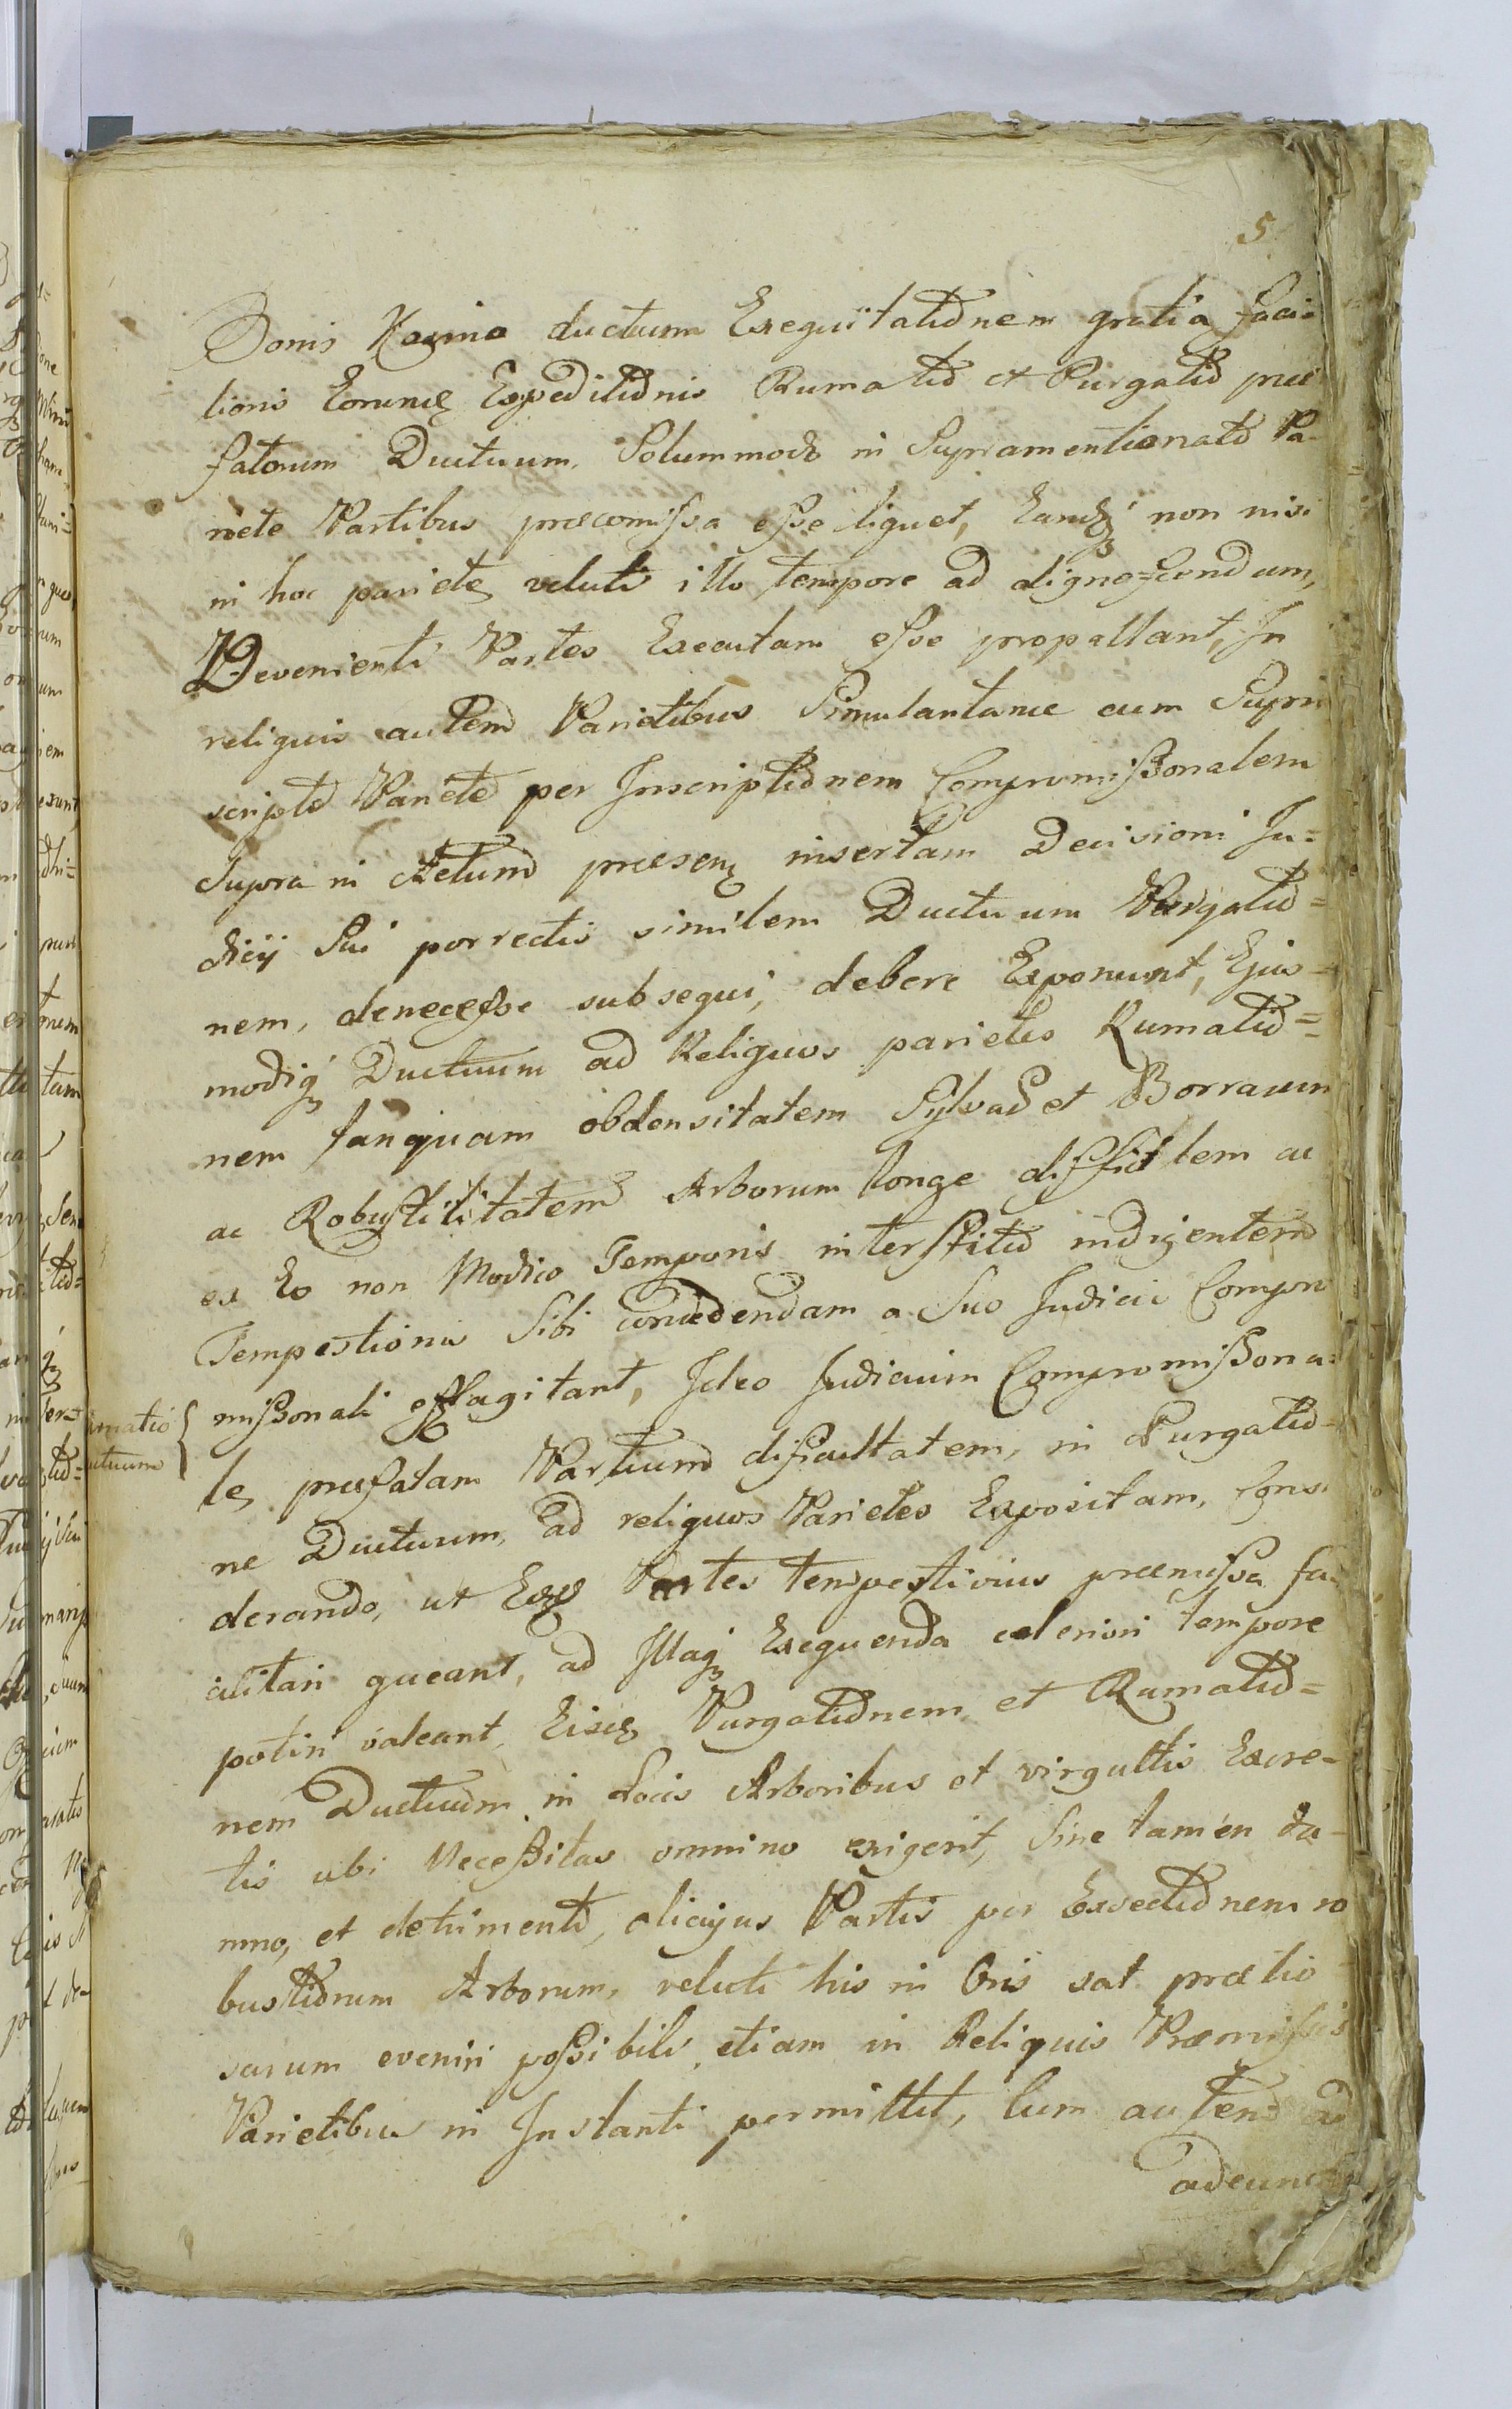 5
Bonis Kozmie ductuum Exequitationem gratia faci=
lioris Eorumq Expeditionis Rumatio et Purgatio prae
fatorum Ductuum, Solummodo in Supramentionato Pa-
riete Partibus praecomissa esse liquet, Eandq non nisi
in hoc pariete veluti illo tempore ad dignoscendum,
Devenienti Partes Executam esse propallant, In
reliquis autem Parietibus Simulantanee cum Supra
scripto Pariete per Inscriptionem Compromissionalem
Supra in Actum praesens insertam Decisioni Ju=
dicij Sui porrectis similem Ductuum Purgatio=
nem, denecesse subsequi, debere Exponunt, Ejus=
modiq Ductuum ad Reliquos parietes Rumatio=
nem tanquam obdensitatem Sylvae et Borrarum
ac Robustilitatem Arborum longe difficilem ac
ex Eo non Modico Temporis interstitio indigentem
Tempestivius Sibi concedendam a Suo Judicio Compro
missionali efflagitant, Ideo Judicium Compromissiona=
le, praefatam Partium dificultatem, in Purgatio=
ne Ductuum, ad reliquos Parietes Expositam, Consi
derando, ut Partes tempestivius praemissa fa
cilitari queant, ad Illaq Exequenda celeriori tempore
potiri valeant, Eisq Purgationem et Rumatio=
nem Ductuum in Locis Arboribus et virgultis Excre=
tis ubi Necessitas omnino exigerit, Sine tamen da-
mno, et detrimento, alicujus Partis per Exsectionem ro
bustiorum Arborum, veluti his in Oris sat praetio
sarum eveniri possibili, etiam in Reliquis Praemissis
Parietibus in Instanti permittit, Cum autem ad
adeun